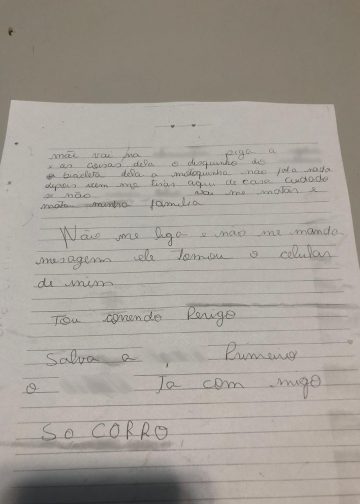 mãe vai na piga a
e as coisas dela o disquinho do
e bicicleta dela a motoquinha não fala nada
depois vem me tirar aqui de casa cuidado
se não vai me matar e
mata minha família
Não me liga e não me manda
mesagem ele tomou o celular
de mim
Tou corendo Perigo
Salva a Rumeiro
o Ja com migo
SO CORRO